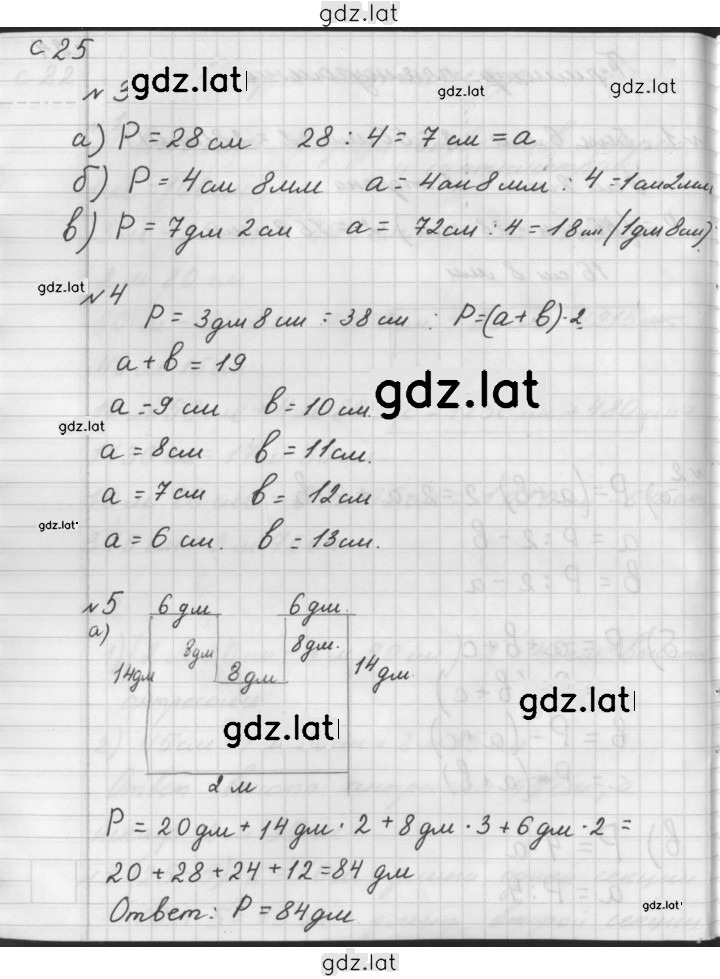 gdz.lat
с. 25
gdz.lat gdz.lat gdz.lat
№ 3
а) P = 28 см 28 : 4 = 7 см = a
б) P = 4 см 8 мм a = 4 см 8 мм : 4 = 1 см 2 мм
в) P = 7 дм 2 см a = 72 см : 4 = 18 см (1 дм 8 см)
gdz.lat
№ 4
P = 3 дм 8 см = 38 см : P = (a + b) · 2
a + b = 19
gdz.lat
a = 9 см b = 10 см.
gdz.lat
a = 8 см b = 11 см.
a = 7 см b = 12 см
gdz.lat
a = 6 см. b = 13 см.
№ 5 6 дм 6 дм.
а)
8 дм 8 дм.
14 дм 8 дм 14 дм.
gdz.lat
gdz.lat
2 м
P = 20 дм + 14 дм · 2 + 8 дм · 3 + 6 дм · 2 =
20 + 28 + 24 + 12 = 84 дм
Ответ: P = 84 дм
gdz.lat
gdz.lat